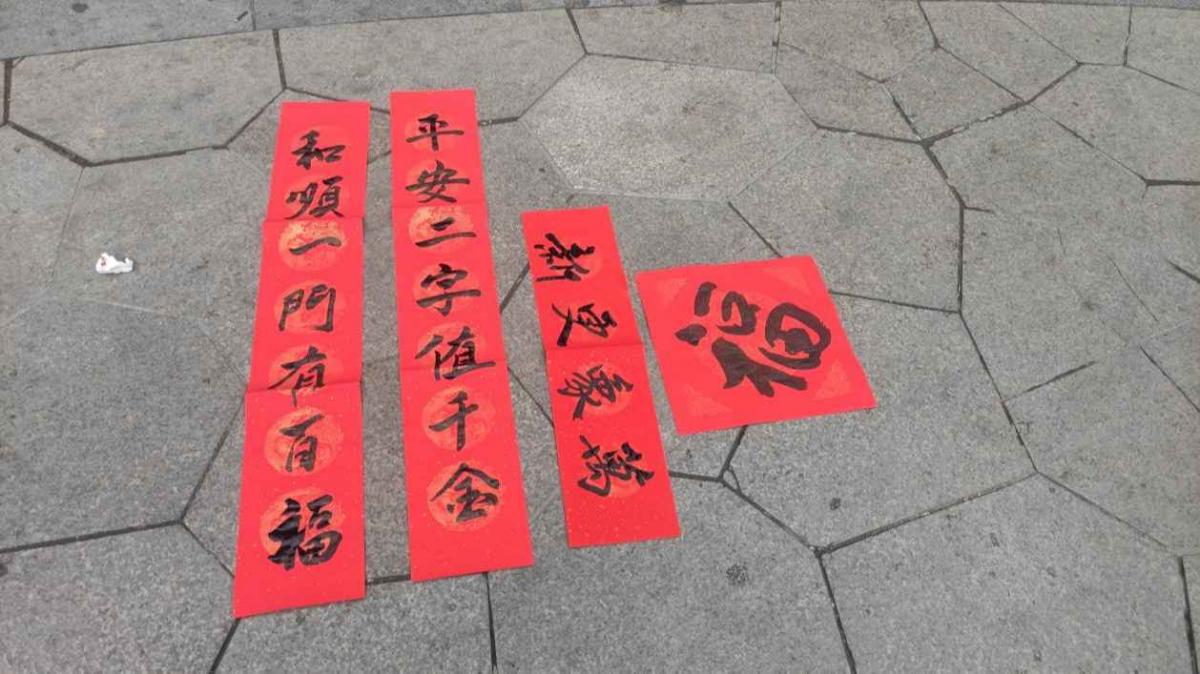 平安二字值千金
和順一門有百福
萬象更新
福